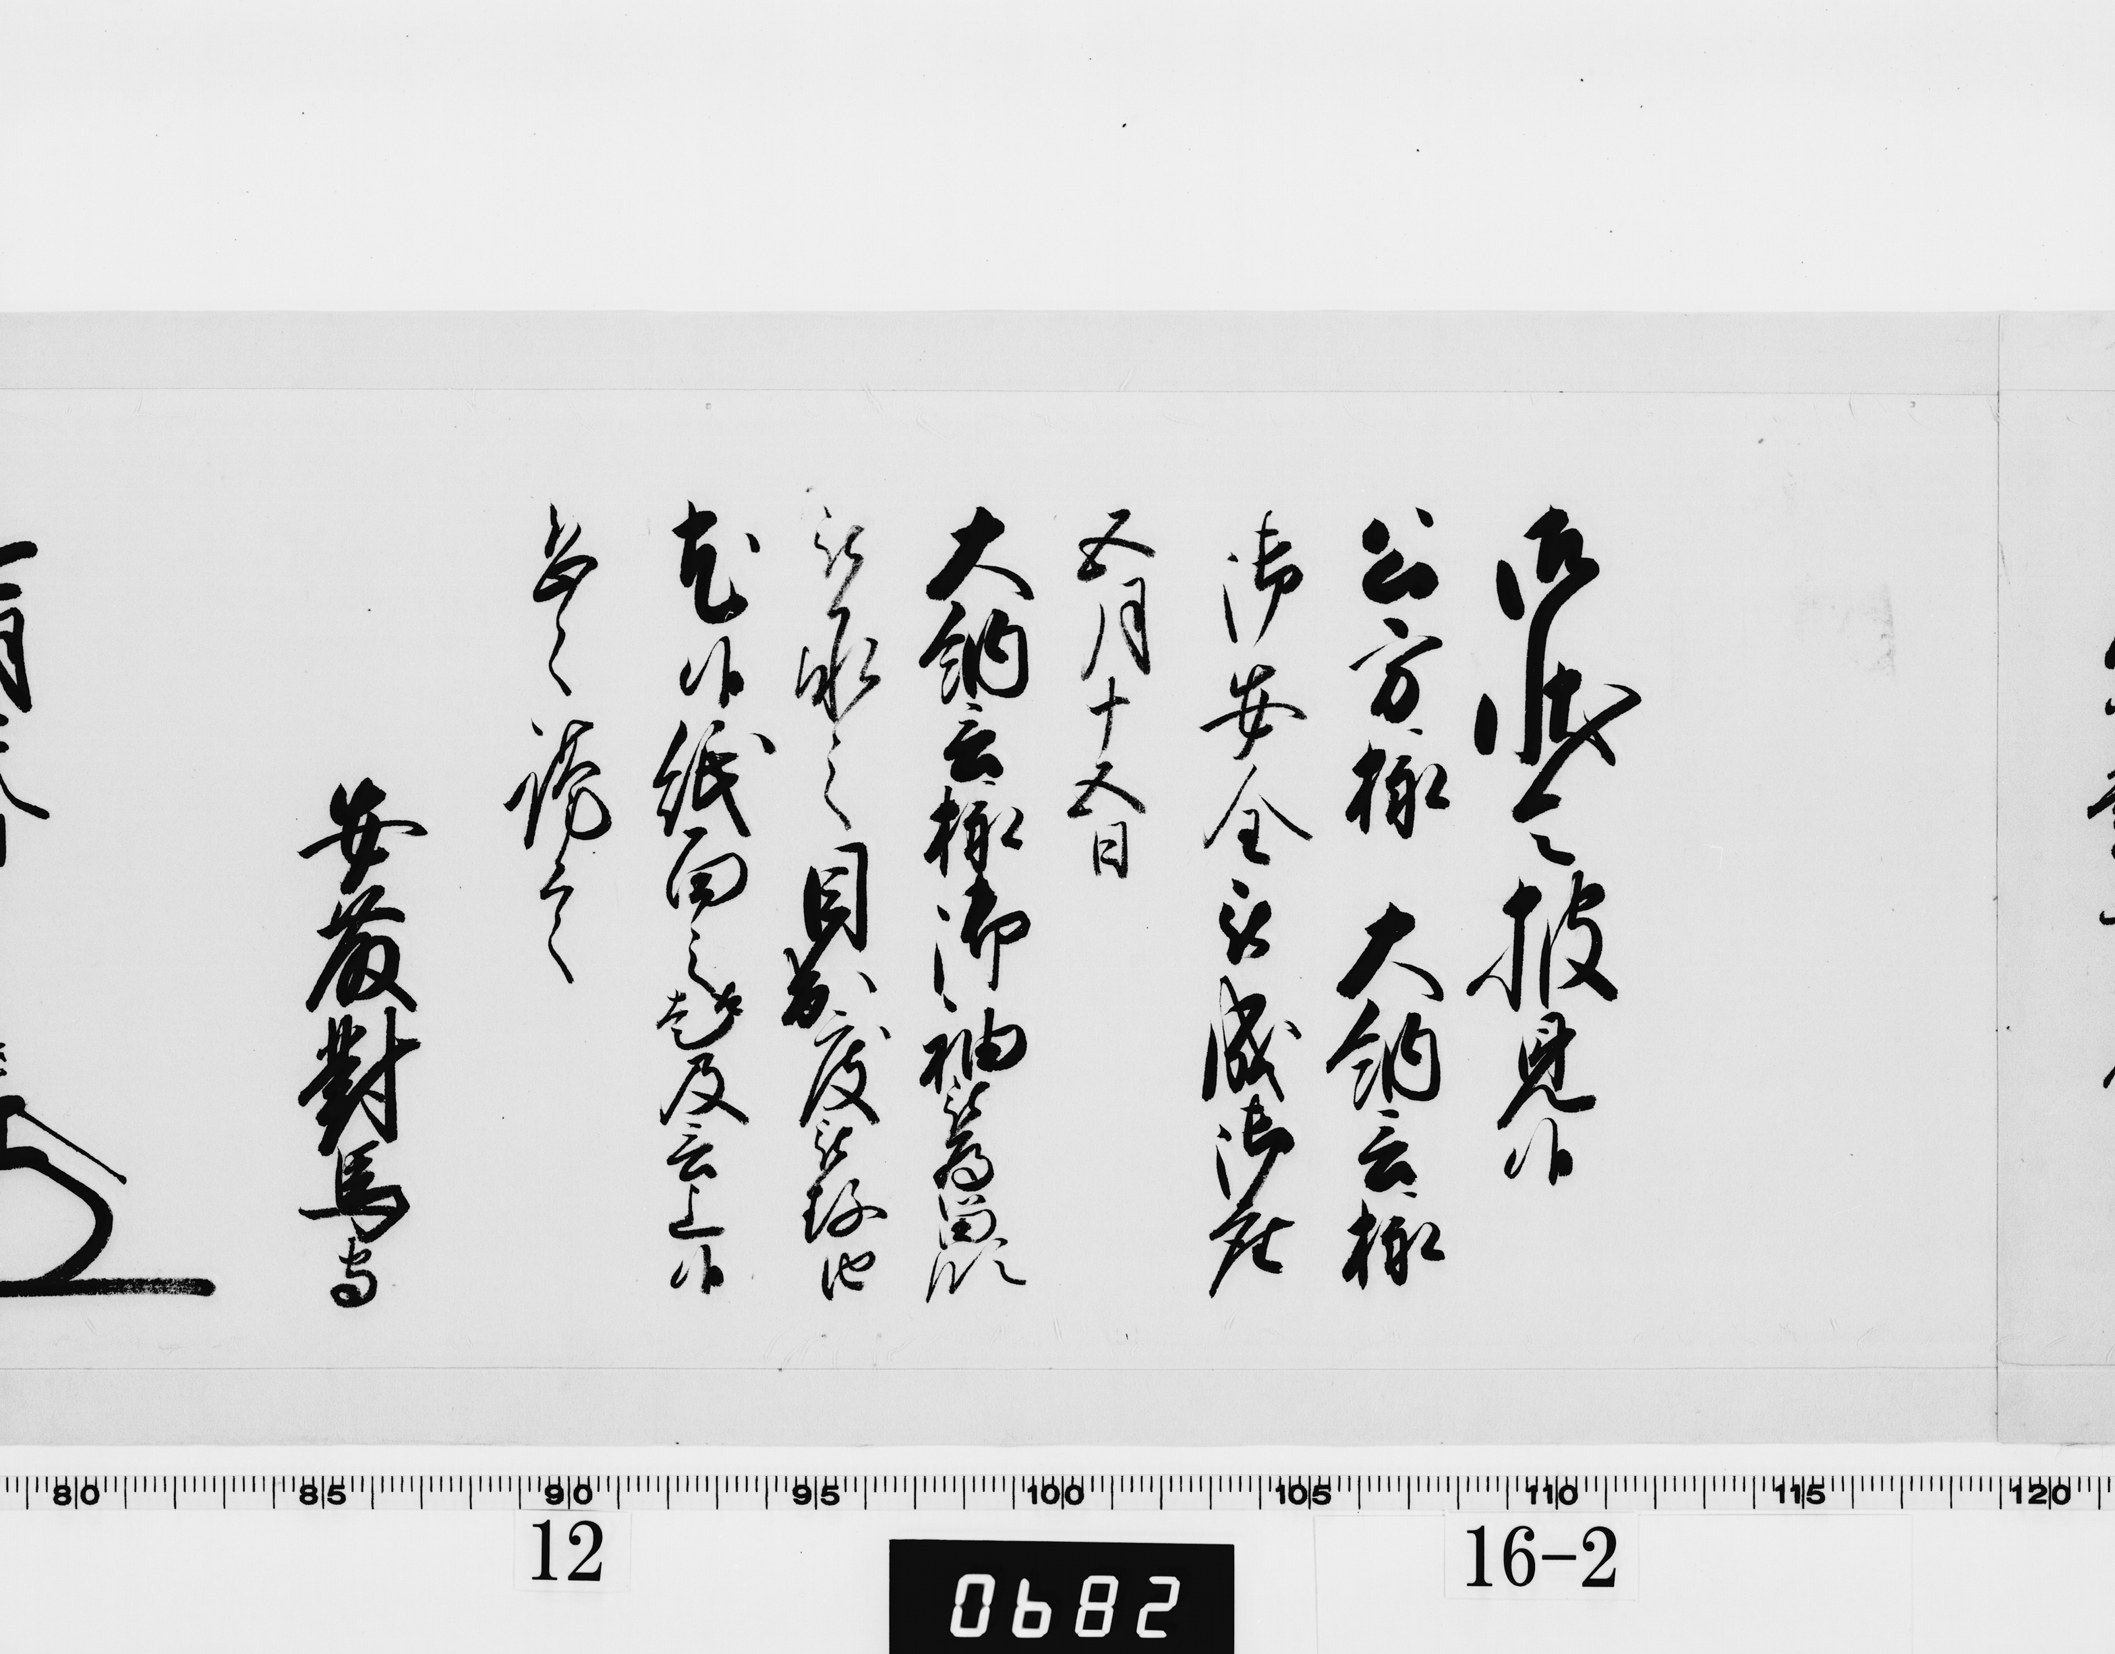 御状令披見候
公方様 大納言様
御安全被成御座
五月十五日
大納言様御袖被為留
被承之目出度被存由
尤候紙面之趣及言上候
恐々謹言
安藤對馬守
80 85 90 95 100 105 110 115 120
12
16-2
0682